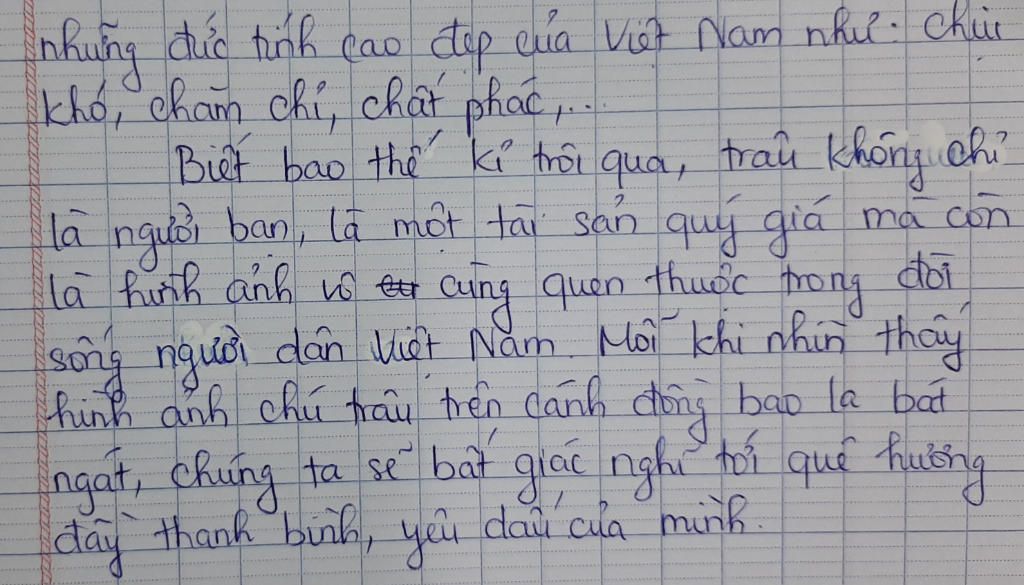 những đức tính cao đẹp của Việt Nam như: chịu
khó, chăm chỉ, chất phác,...
Biết bao thế kỉ trôi qua, trâu không chỉ
là người bạn, là một tài sản quý giá mà còn
là hình ảnh vô cùng quen thuộc trong đời
sống người dân Việt Nam. Mỗi khi nhìn thấy
hình ảnh chú trâu trên cánh đồng bao la bát
ngát, chúng ta sẽ bất giác nghĩ tới quê hương
đầy thanh bình, yêu dấu của mình.